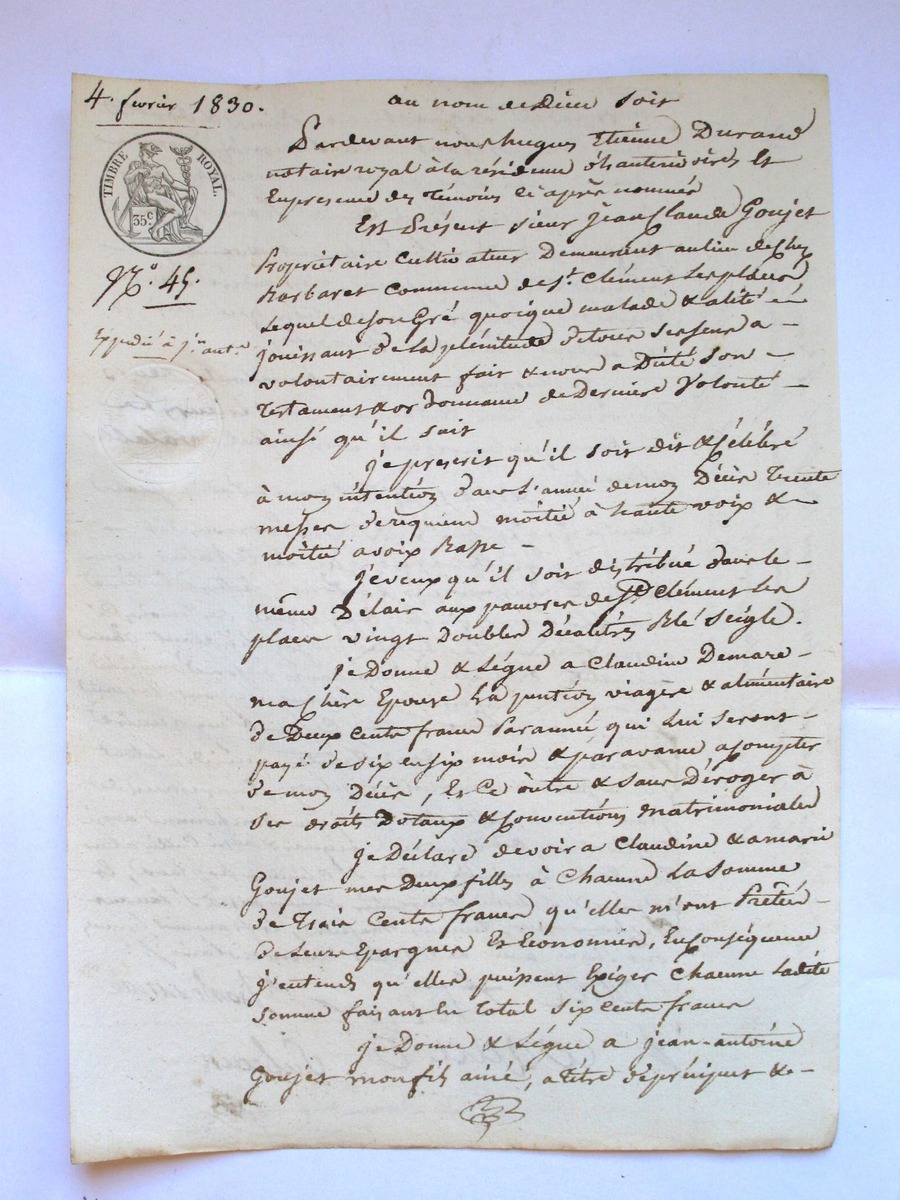 4. fevrier 1830.
au nom de dieu soit
TIMBRE ROYAL.
35c
No. 45.
Expedié à
Pardevant nous hugues Etienne Durand
notaire royal à la résidence Et
En presence des Témoins ci après nommés
Est Présent sieur jean Claude Goujet
Propriétaire Cultivateur Demeurant au lieu de chez
Barbaret Commune de St. Clément les places
Lequel de son Gré quoique malade & alité
jouissant de la plénitude de tous ses sens a -
volontairement fait & nous a Dicté Son -
Testament & ordonnance de Derniere Volonté -
ainsi qu'il suit
je prescrit qu'il soit dit & Célébré
à mon intention dans L'année de mon Décès Trente
messes de requiem moitié à haute voix & -
moitié a voix Basse -
je veux qu'il soit distribué dans le -
même Délais aux pauvres de St Clément les
places vingt Doubles Décalitres Blé Seigle.
je Donne & Légue a Claudine Demare -
ma chère Epouse La pention viagere & alimentaire
de Deux Cents francs Par année qui Lui seront -
payé de six en six mois & par avance a compter
de mon Décès, Et Ce outre & sans Déroger à
Ses droits Dotaux & Conventions matrimoniales
je Déclare devoir a Claudine & a marie
Goujet mes Deux filles à Chacune La Somme
de Trois Cents francs qu'elles m'ont Prêtés -
de Leurs Epargnes Et Economies, En Conséquence
j'entends qu'elles puissent Exiger Chacune Ladite
Somme faisant En Total Six Cents francs
je Donne & Légue a jean-antoine
Goujet mon fils ainé, a titre de préciput & -